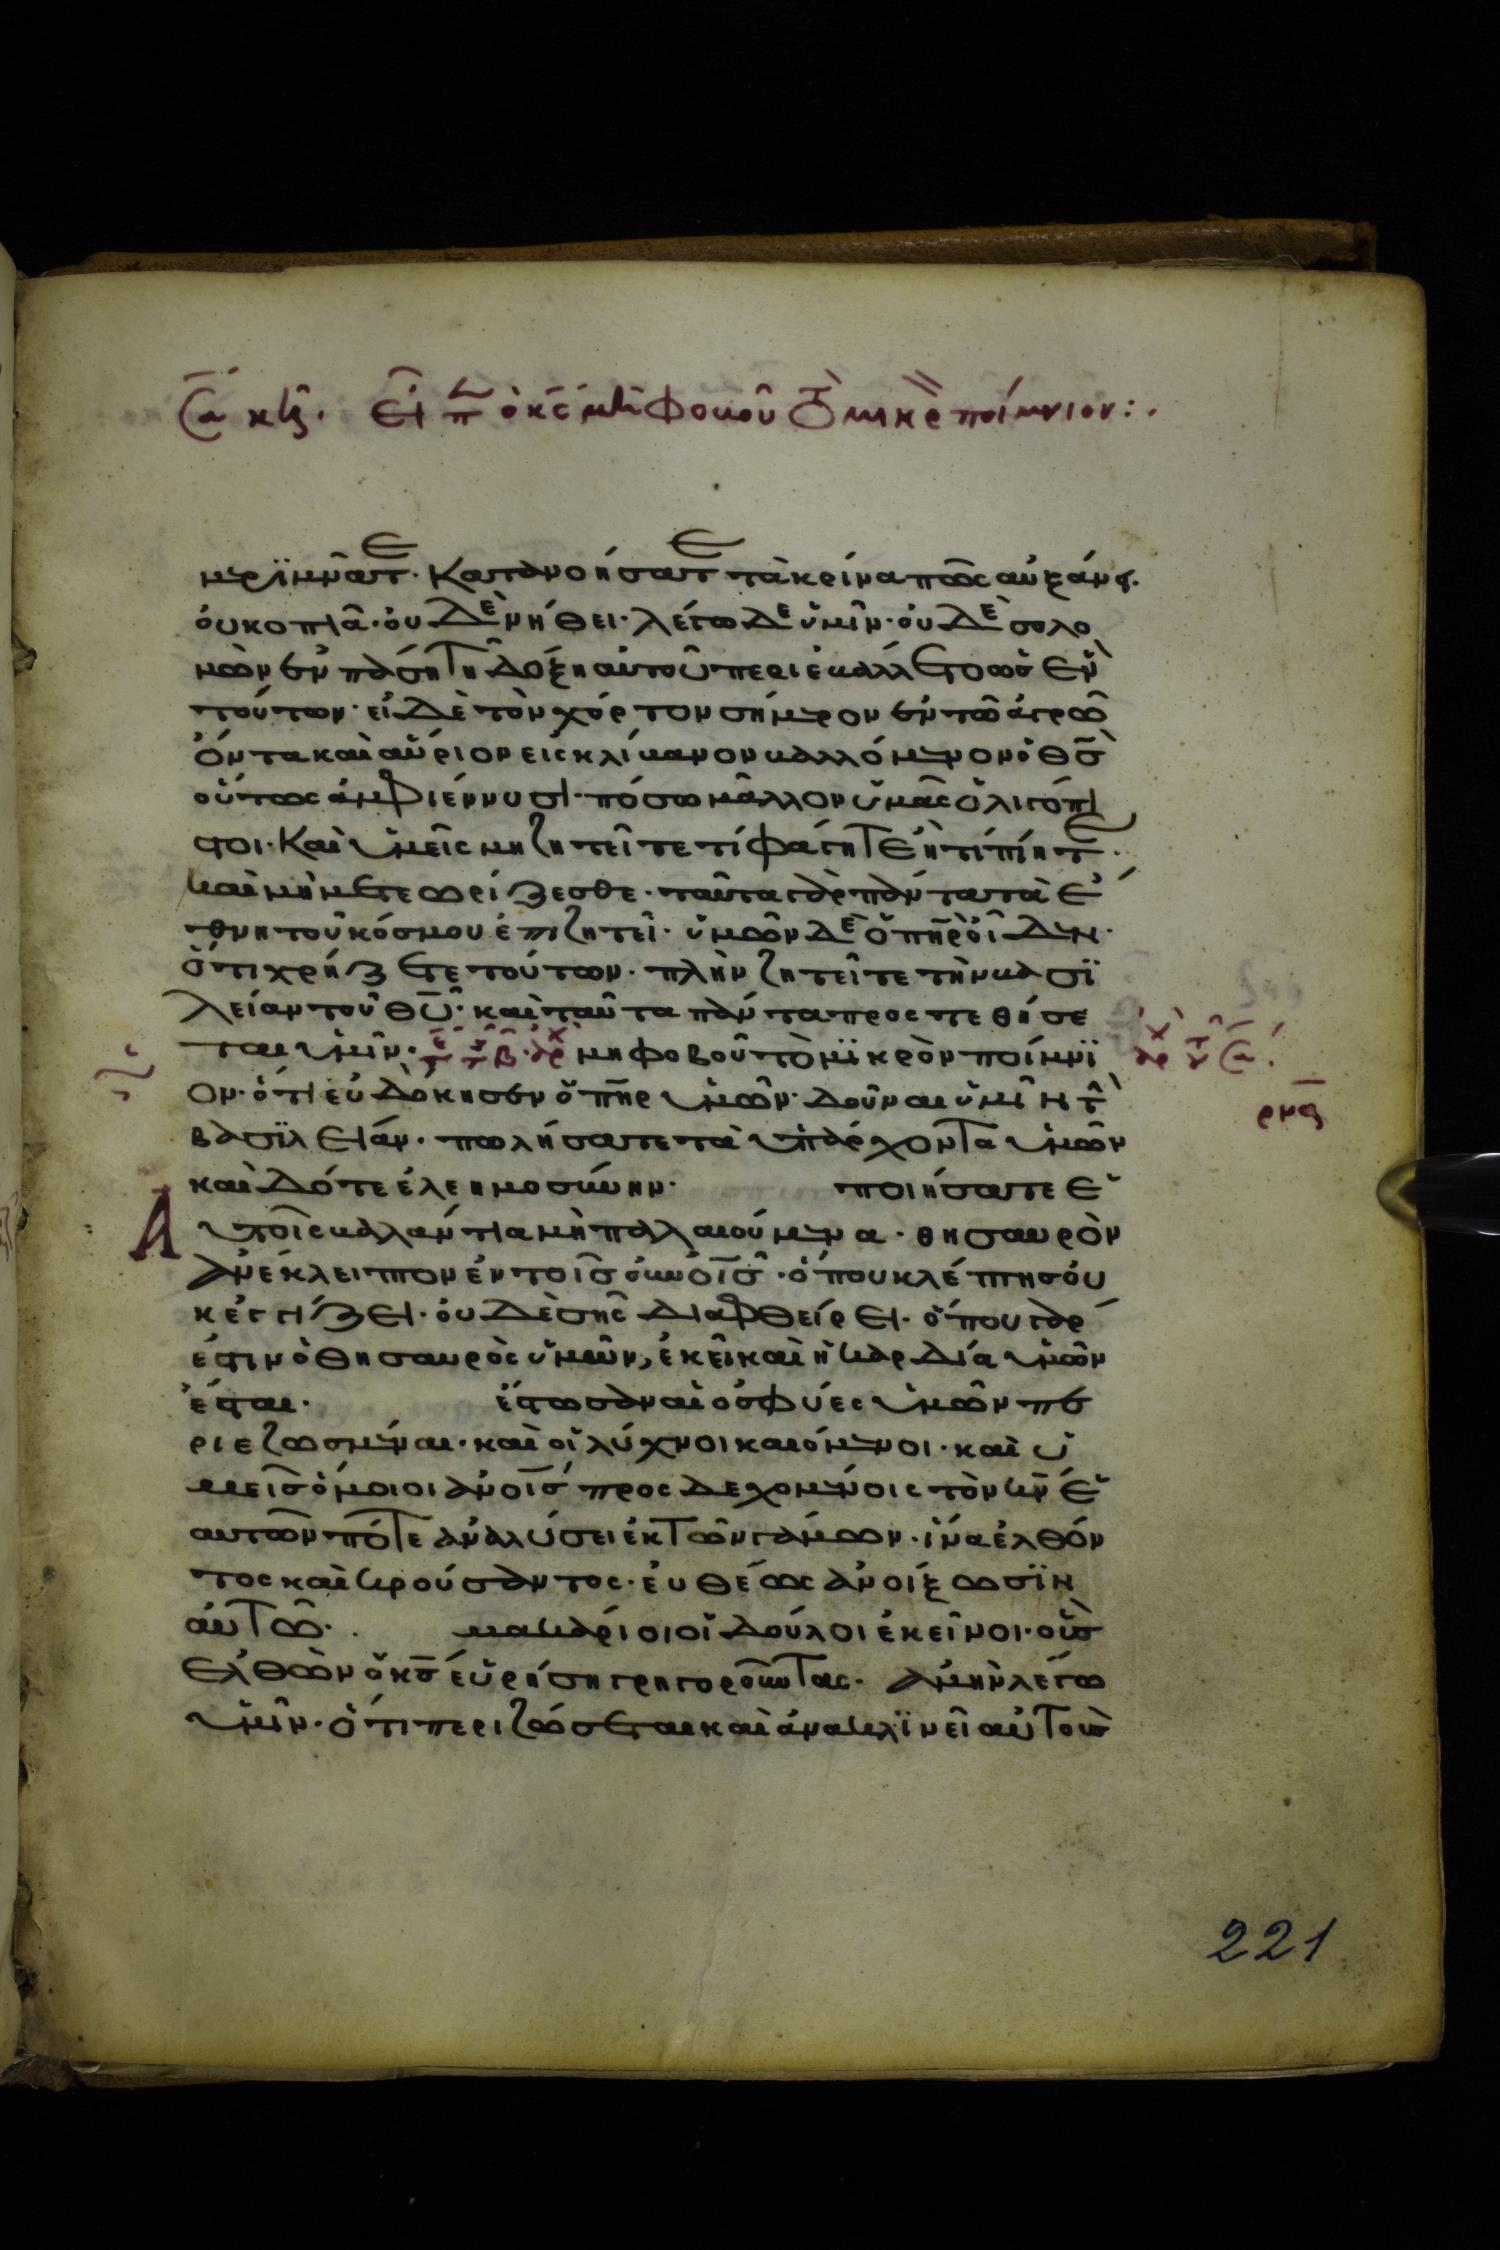 μεριμνᾶτε· Κατανοήσατε τὰ κρίνα πῶς αὐξάνει·
οὐ κοπιᾶ· οὐδὲ νήθει· λέγω δὲ ὑμῖν· οὐδὲ σολο
μὼν ἐν πάση τῆ δόξη αὐτοῦ περιεβάλλετο ὡς ἓν
τούτων· εἰ δὲ τὸν χόρτον σήμερον ἐν τῶ ἀγρῶ
ὄντα καὶ αὔριον εἰς κλίβανον βαλλόμενον ὁ θς
οὕτως ἀμφιέννυσι· πόσω μᾶλλον ὑμᾶς ὀλιγόπι
στοι· Καὶ ὑμεῖς μὴ ζητεῖτε τί φάγητε ἢ τί πίητε·
καὶ μὴ μετεωρίζεσθε· ταῦτα γὰρ πάντα τὰ ἔ
θνη τοῦ κόσμου ἐπιζητεῖ· ὑμῶν δὲ ὁ πηρ οἶδεν·
ὅτι χρήζετε τούτων· πλὴν ζητεῖτε τὴν βασι
λείαν τοῦ θυ· καὶ ταῦτα πάντα προστεθήσε
ται ὑμῖν· μὴ φοβοῦ τὸ μικρὸν ποίμνι
ον· ὅτι εὐδόκησεν ὁ πηρ ὑμῶν· δοῦναι ὑμῖν τὴν
βασιλείαν· πωλήσατε τὰ ὑπάρχοντα ὑμῶν
καὶ δότε ἐλεημοσύνην· ποιήσατε ἑ
αυτοῖς βαλάντια μὴ παλαιούμενα· θησαυρὸν
ἀνέκλειπτον ἐν τοῖς οὐνοῖς· ὅπου κλέπτης οὐ
κ ἐγγίζει· οὐδὲ σὴς διαφθείρει· ὅπου γάρ
ἐστιν ὁ θησαυρὸς ὑμῶν, ἐκεῖ καὶ ἡ καρδία ὑμῶν
ἔσται· ἔστωσαν αἱ ὀσφύες ὑμῶν πε
ριεζωσμέναι· καὶ οἱ λύχνοι καιόμενοι· καὶ ὑ
μεῖς ὅμοιοι ἀνοις προσδεχομένοις τὸν κν ἑ
αυτῶν πότε ἀναλύσει ἐκ τῶν γάμων· ἵνα ἐλθόν
τος καὶ κρούσαντος· εὐθέως ἀνοίξωσιν
αὐτῶ· μακάριοι οἱ δοῦλοι ἐκεῖνοι· οὓς
ἐλθὼν ὁ κς εὑρήση γρηγοροῦντας· ἀμὴν λέγω
ὑμῖν· ὅτι περιζώσεται καὶ ἀνακλινεῖ αὐτοὺς
221